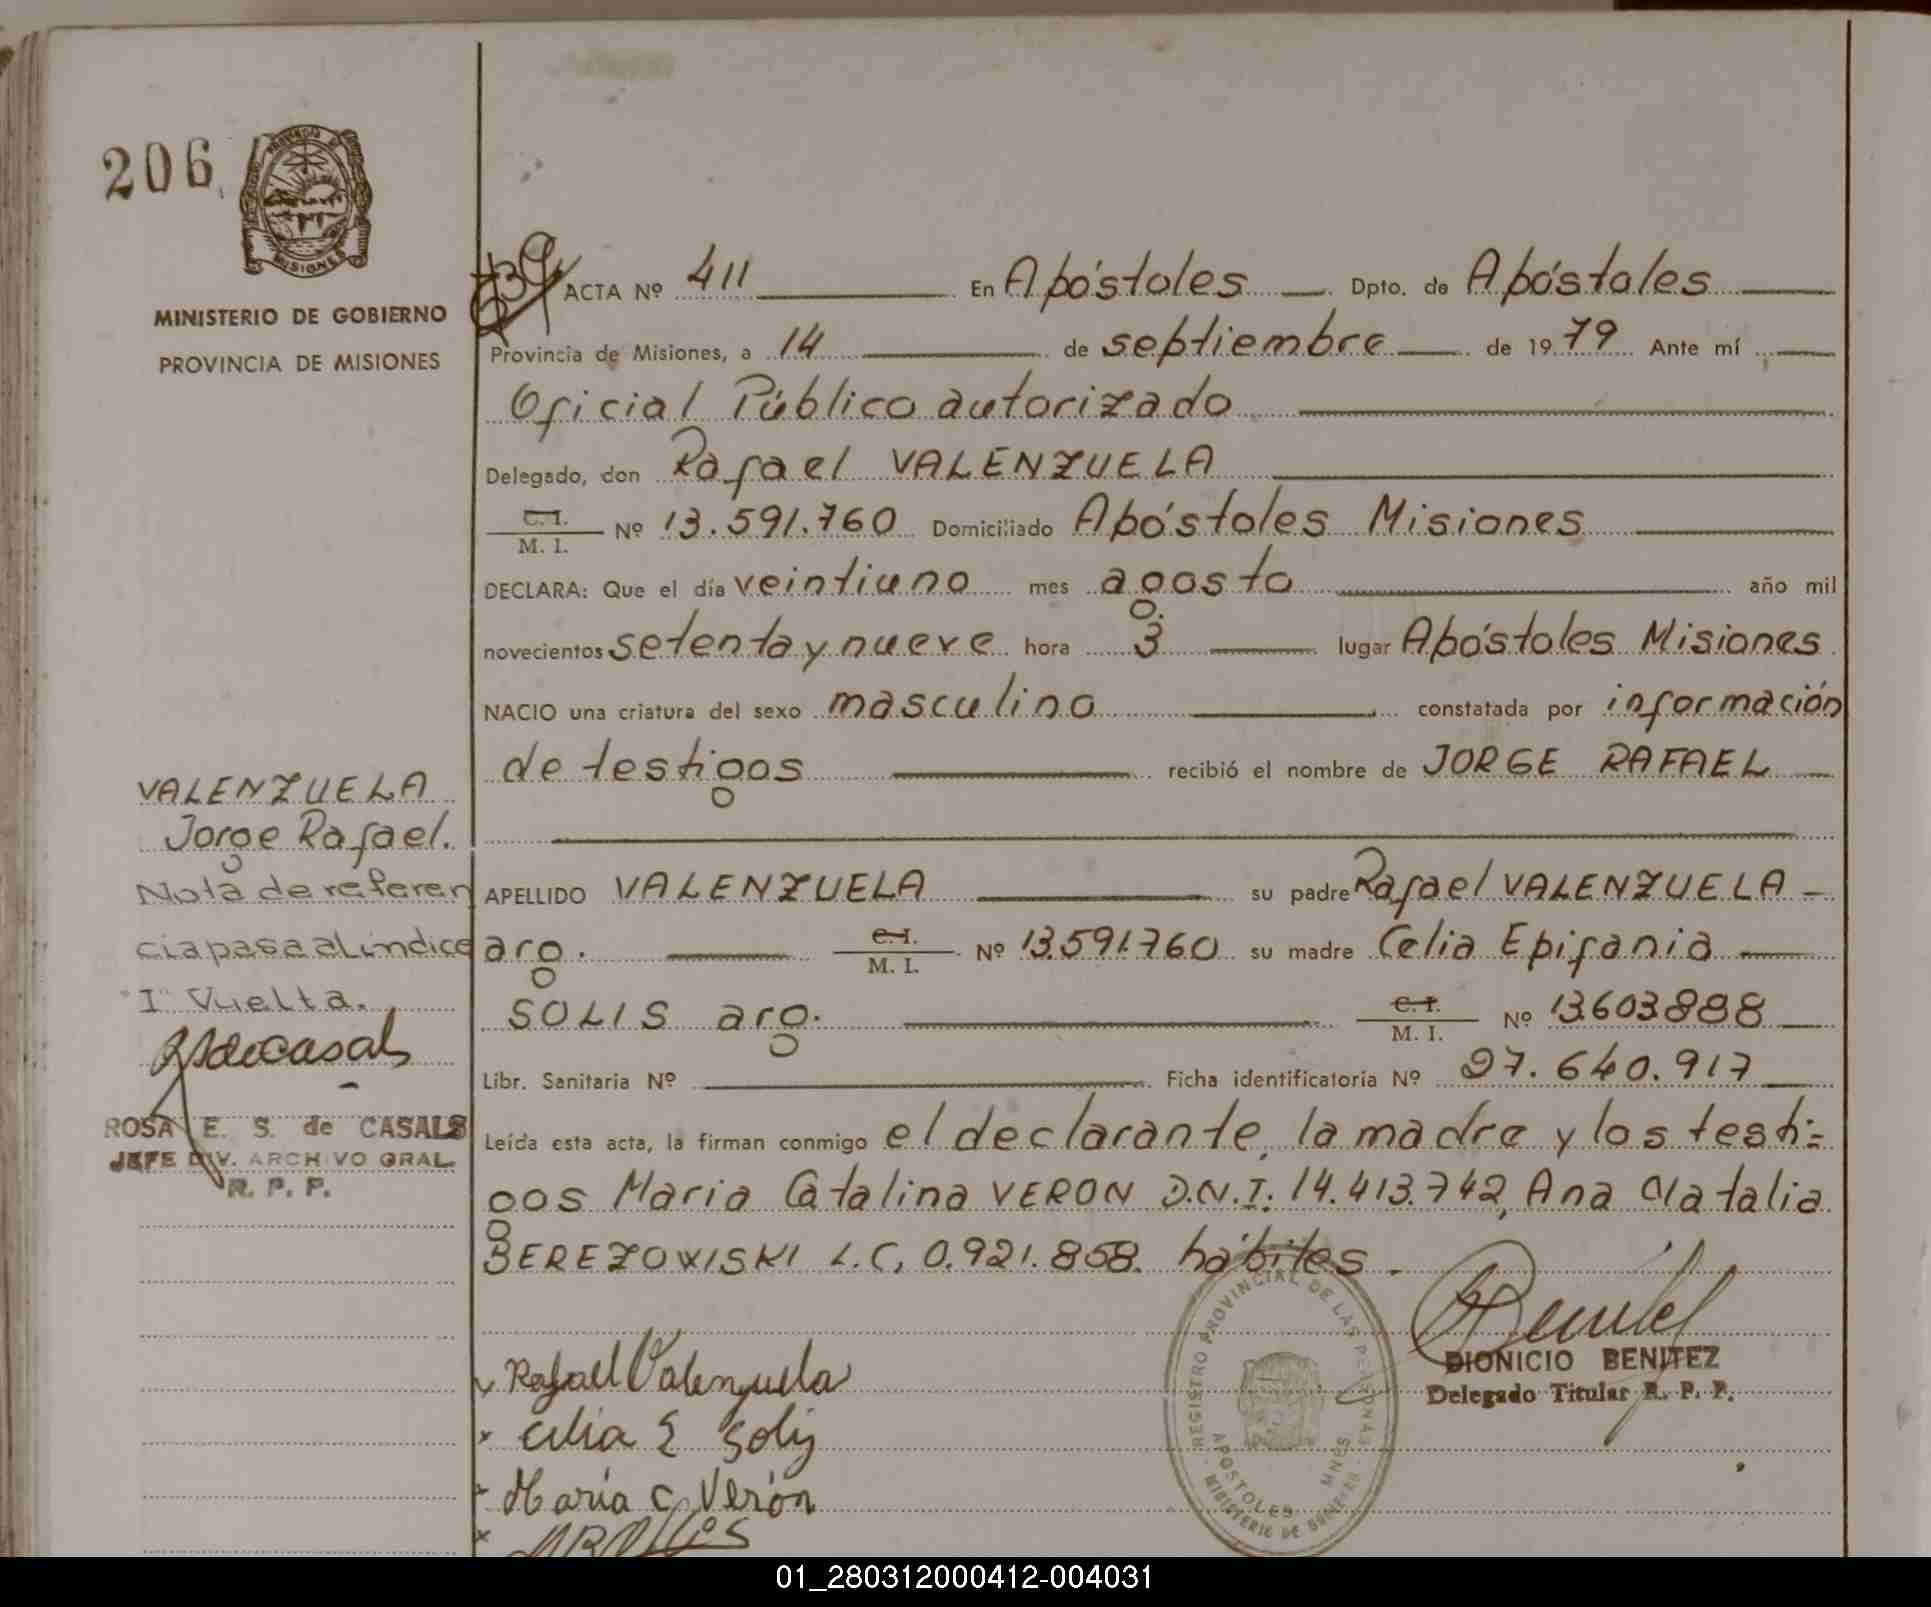 206
PROVINCIA DE
MISIONES
MINISTERIO DE GOBIERNO
PROVINCIA DE MISIONES
ACTA Nº 411 En Apóstoles Dpto. de Apóstoles
Provincia de Misiones, a 14 de septiembre de 1979 Ante mí
Oficial Público autorizado
Delegado, don Rafael VALENZUELA
C. I.
M. I. Nº 13.591.760 Domiciliado Apóstoles Misiones
DECLARA: Que el día veintiuno mes agosto año mil
novecientos setenta y nueve hora 3 lugar Apóstoles Misiones
NACIO una criatura del sexo masculino constatada por información
de testigos recibió el nombre de JORGE RAFAEL
VALENZUELA
Jorge Rafael.
Nota de referen
cia pasa al índice
Iª Vuelta.
ROSA E. S. de CASALS
JEFE DIV. ARCHIVO GRAL.
R. P. P.
APELLIDO VALENZUELA su padre Rafael VALENZUELA
arg. C. I.
M. I. Nº 13.591.760 su madre Celia Epifania
SOLIS arg. C. I.
M. I. Nº 13.603.888
Libr. Sanitaria Nº Ficha identificatoria Nº 27.640.917
Leída esta acta, la firman conmigo el declarante, la madre y los testi=
gos Maria Catalina VERON D.N.I. 14.413.742, Ana Natalia
BEREZOWISKI L.C. 0.921.858. hábiles.
Rafael Valenzuela
Celia E Solis
María C. Verón
REGISTRO PROVINCIAL DE LAS PERSONAS
APOSTOLES MNES
MINISTERIO DE GOBIERNO
DIONICIO BENITEZ
Delegado Titular R. P. P.
01_280312000412-004031